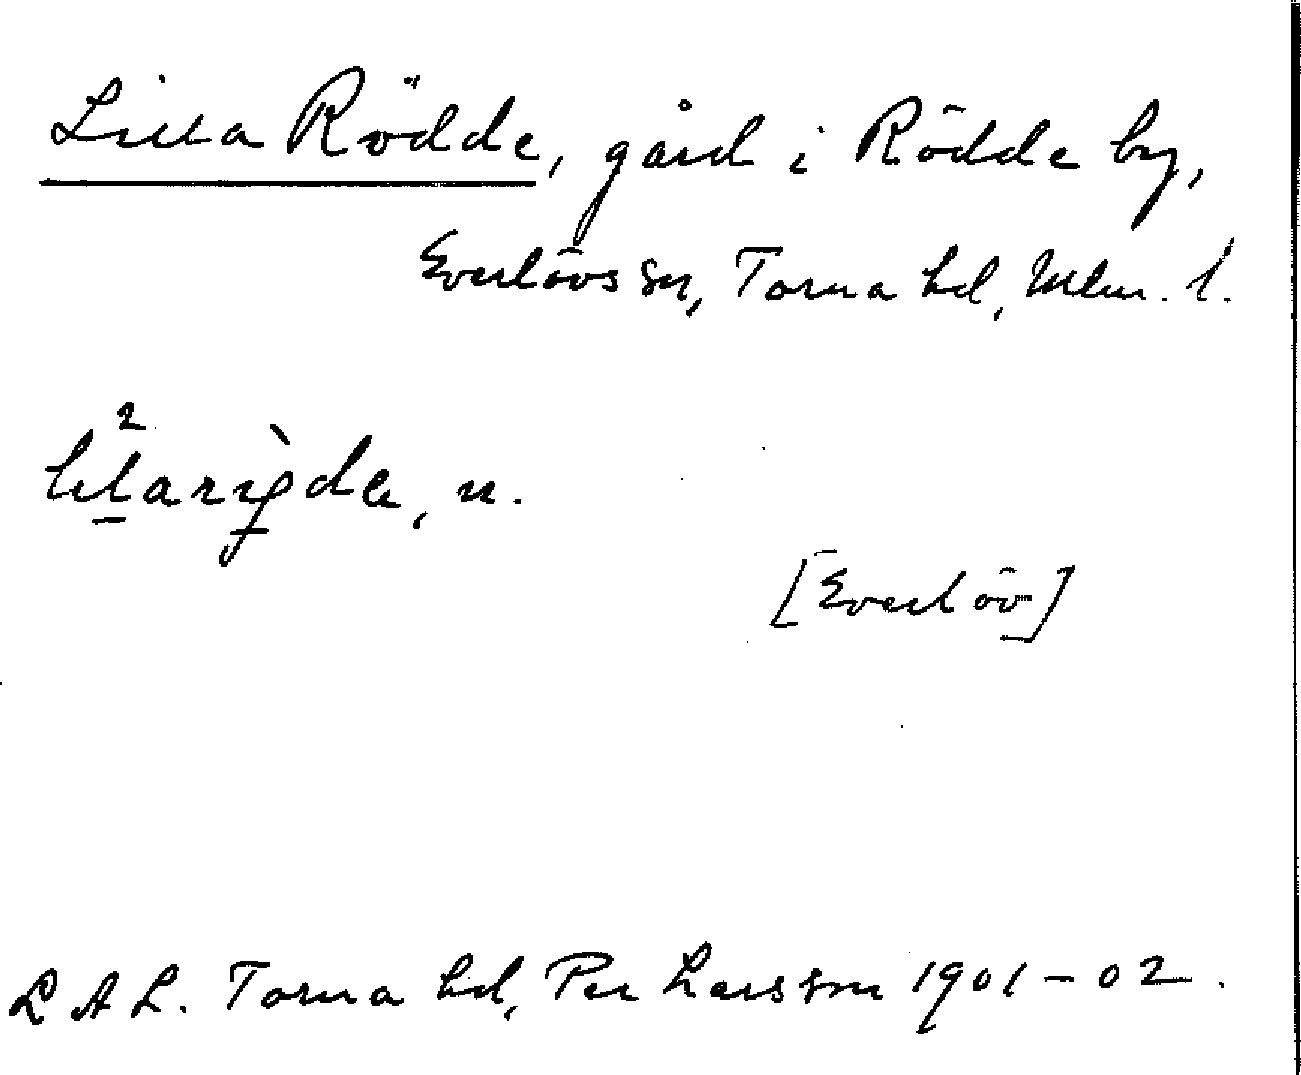 Lilla Rödde, gård i Rödde by,
Everlövs sn, Torna hd, Mlm. l.
n.
[Everlöv]
LAL. Torna hd, Per Larsson 1901-02.